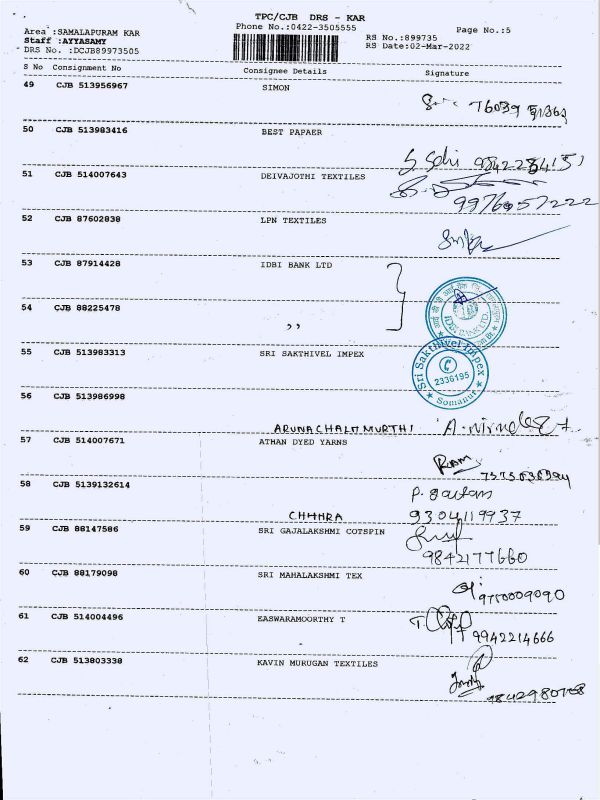 TPC/CJB DRS - KAR
Area :SAMALAPURAM KAR
Phone No.:0422-3505555
Page No.:5
Staff :AYYASAMY
RS No.:899735
DRS No. :DCJB89973505
RS Date:02-Mar-2022
S No Consignment No Consignee Details Signature
49 CJB 513956967 SIMON
50 CJB 513983416 BEST PAPAER
51 CJB 514007643 DEIVAJOTHI TEXTILES
9976057222
52 CJB 87602838 LPN TEXTILES
53 CJB 87914428 IDBI BANK LTD
54 CJB 88225478 ,,
IDBI BANK LTD.
55 CJB 513983313 SRI SAKTHIVEL IMPEX
Sri Sakthivel Impex
2336195
Somanur
56 CJB 513986998
ARUNACHALA MURTHI
57 CJB 514007671 ATHAN DYED YARNS
Ram
58 CJB 5139132614
P. Gautam
CHHHRA 9304119937
59 CJB 88147586 SRI GAJALAKSHMI COTSPIN
9842177660
60 CJB 88179098 SRI MAHALAKSHMI TEX
9750009090
61 CJB 514004496 EASWARAMOORTHY T
9942214666
62 CJB 513803338 KAVIN MURUGAN TEXTILES